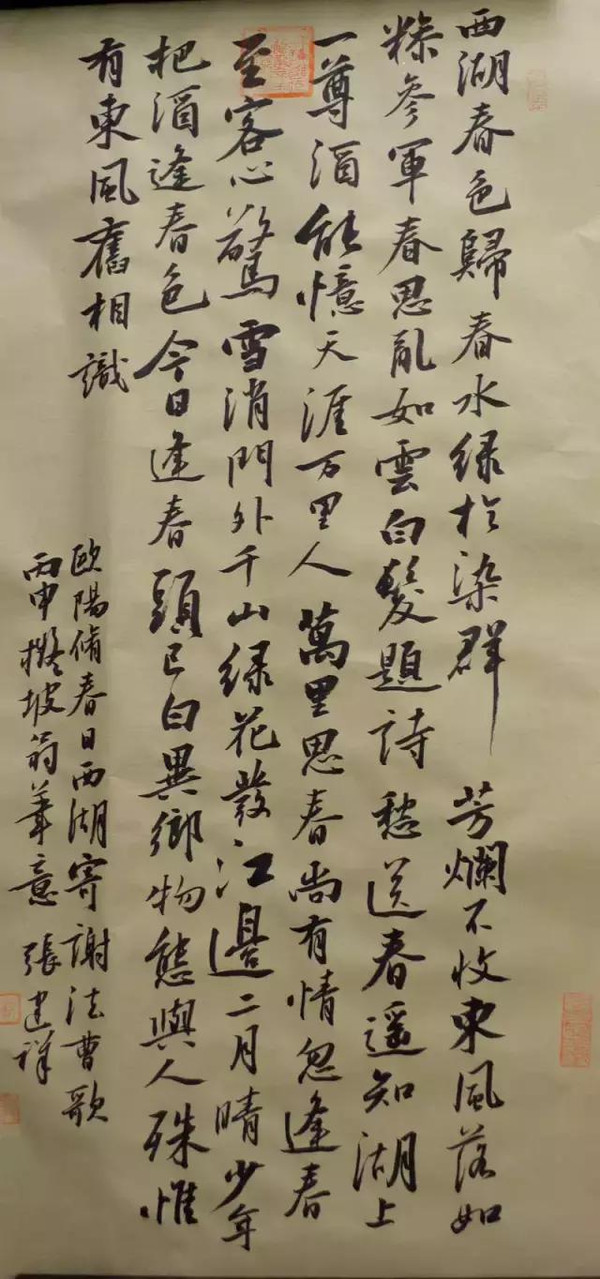 西湖春色歸春水綠於染群芳爛不收東風落如
糝參軍春思亂如雲白髮題詩愁送春遥知湖上
一尊酒能憶天涯万里人萬里思春尚有情忽逢春
至客心驚雪消門外千山绿花發江邊二月晴少年
把酒逢春色今日逢春頭已白異鄉物態與人殊惟
有東風舊相識
歐陽脩春日西湖寄謝法曹歌
丙申擬坡翁筆意 張建祥